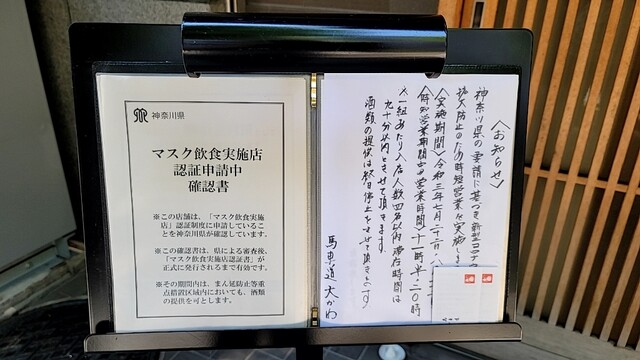 神奈川県
マスク飲食実施店
認証申請中
確認書
※この店舗は、「マスク飲食実施
店」認証制度に申請しているこ
とを神奈川県が確認しています。
※この確認書は、県による審査後、
「マスク飲食実施店認証書」が
正式に発行されるまで有効です。
※その期間内は、まん延防止等重
点措置区域内においても、酒類
の提供を可とします。
〈お知らせ〉
神奈川県の要請に基づき新型コロナウ
拡大防止のため時短営業を実施し
〈実施期間〉令和三年七月二十二日
〈時短営業期間中の営業時間〉十一時半〜二〇時
※一組あたり入店人数四名以内滞在時間は
九十分以内とさせて頂きます。
酒類の提供は終日停止をさせて頂きます。
馬車道大かわ